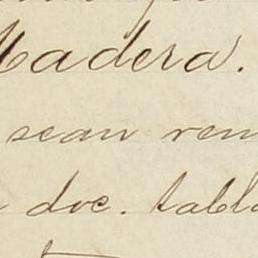 Madera.
sean ren
doc. tabla